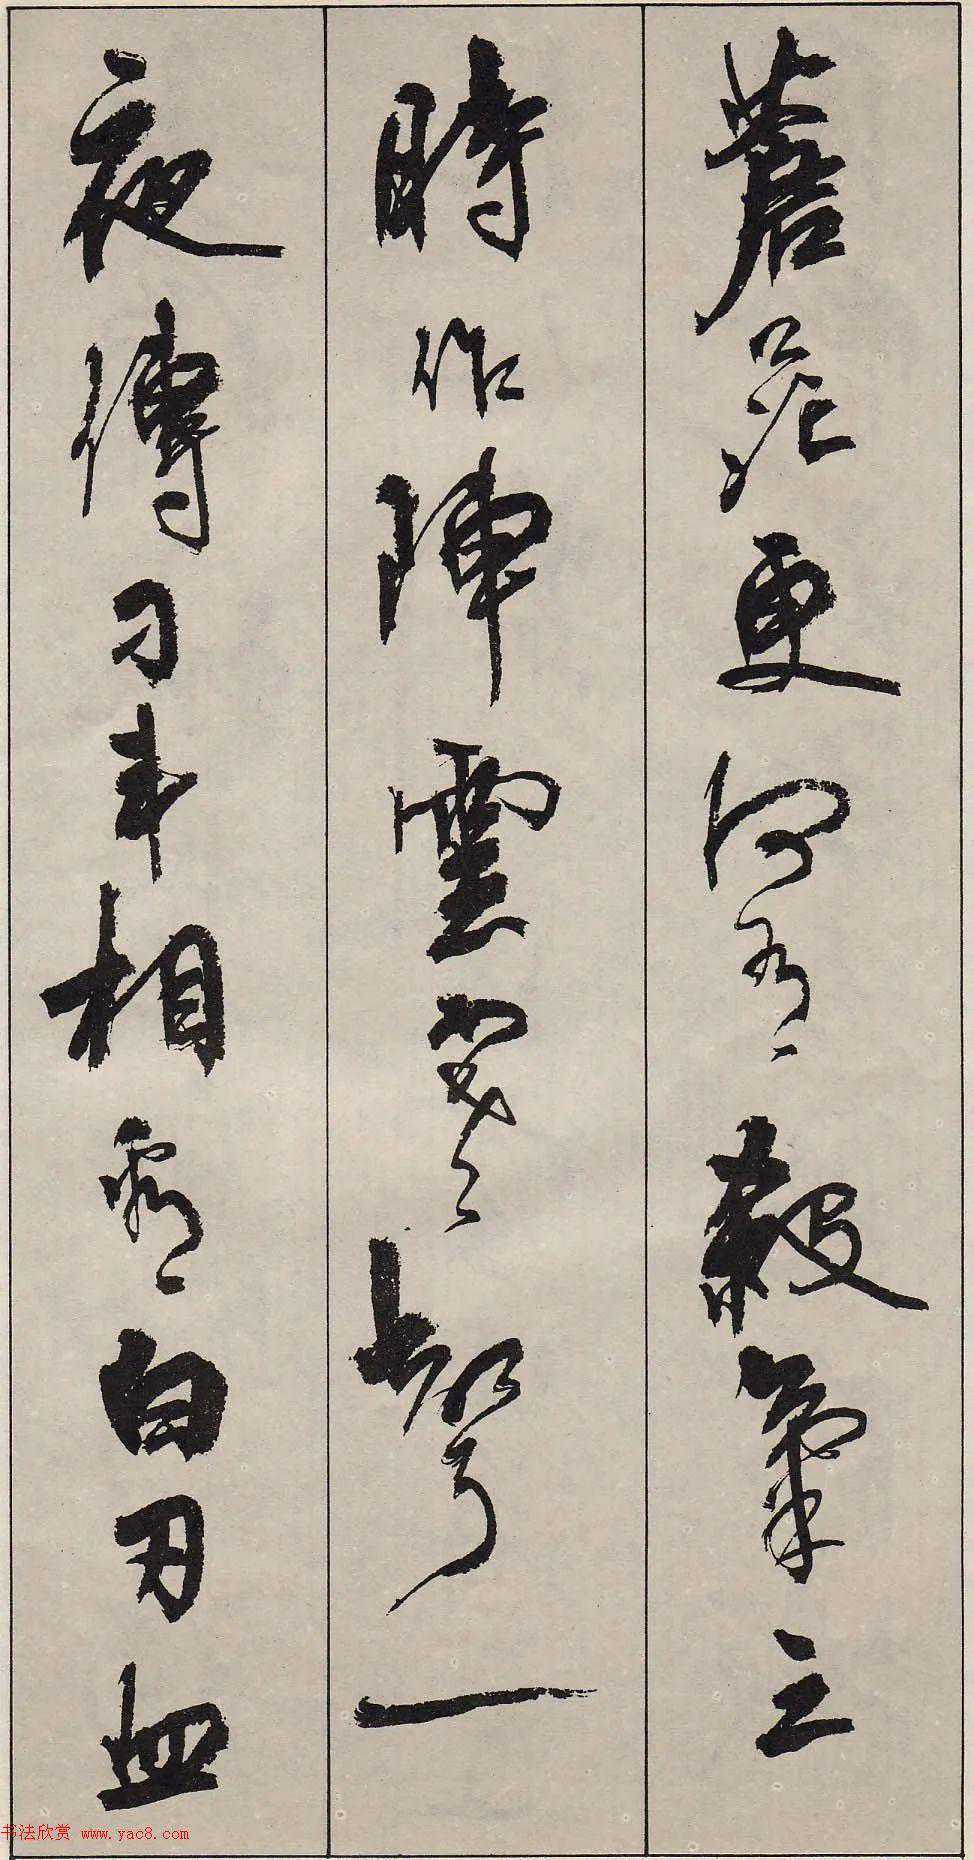 蒼茫更何有殺氣三
時作陣雲寒聲一
夜傳刁斗相看白刃血
书法欣赏 www.yac8.com